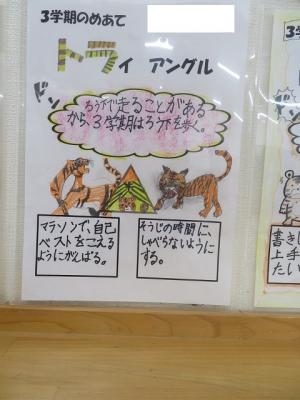 3学期のめあて
トライ アングル
ドン
ろう下で走ることがある
から、3学期はろう下を歩く。
マラソンで、自己
ベストをこえる
ようにがんばる。
そうじの時間に、
しゃべらないように
する。
書き
上手
たい